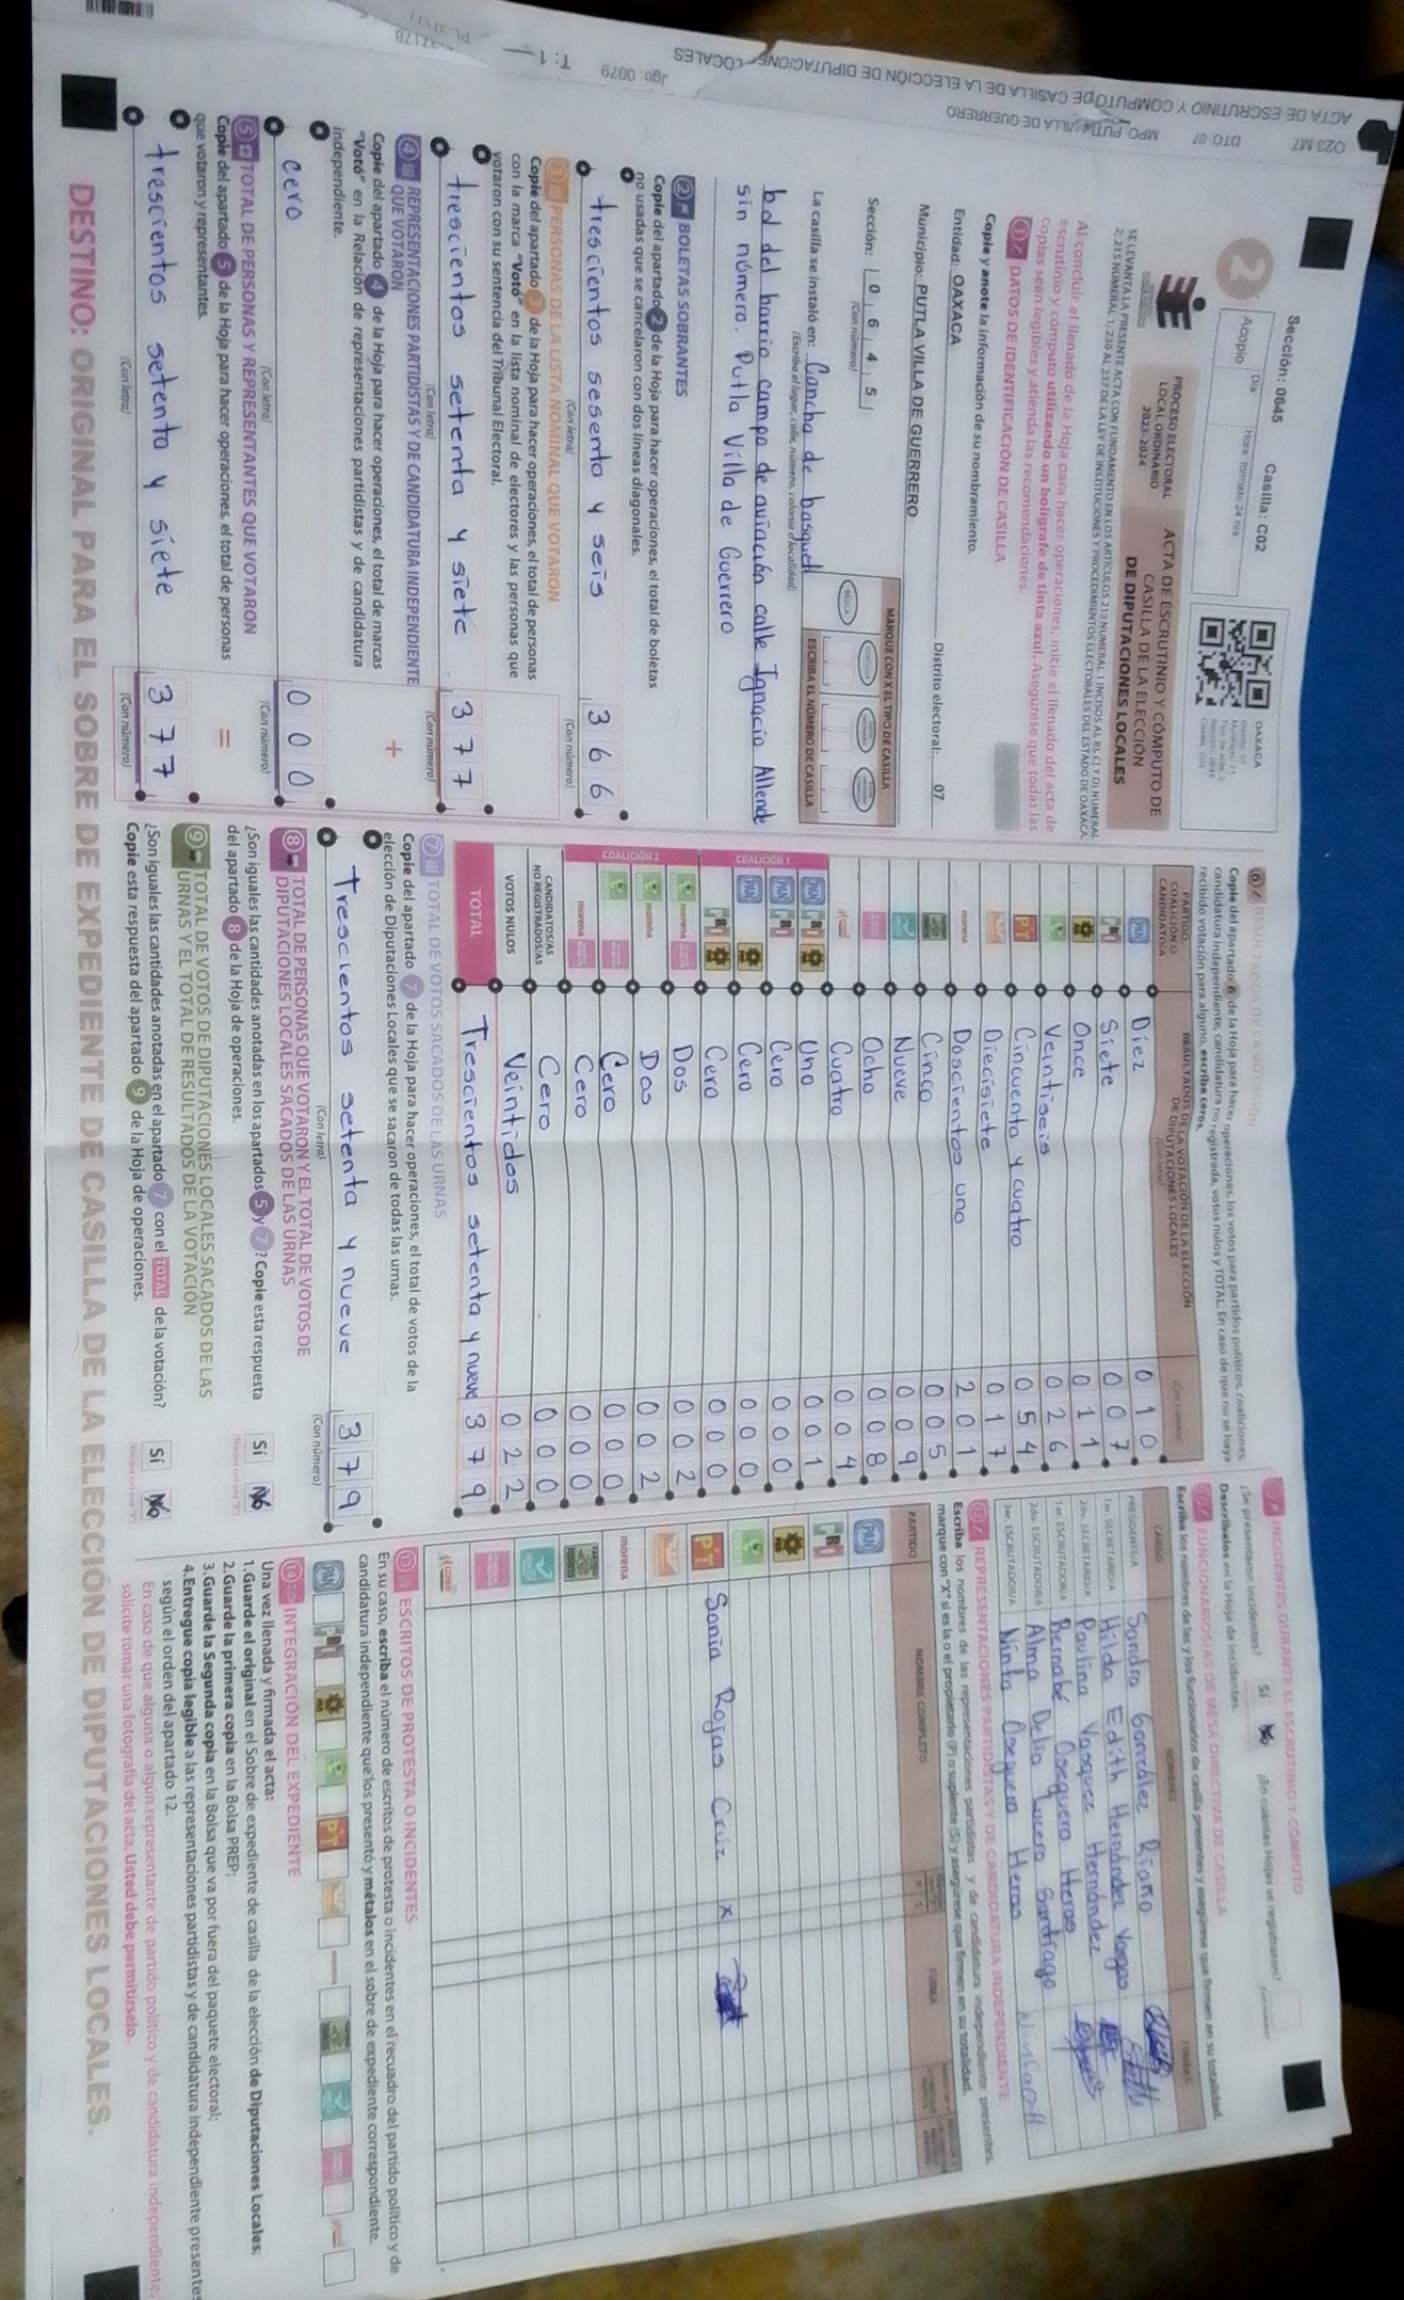 Sección: 0645 Casilla: C02
2
Acopio
Día
Hora: formato 24 hrs
OAXACA
PROCESO ELECTORAL
LOCAL ORDINARIO
2023-2024
ACTA DE ESCRUTINIO Y CÓMPUTO DE
CASILLA DE LA ELECCIÓN
DE DIPUTACIONES LOCALES
SE LEVANTA LA PRESENTE ACTA CON FUNDAMENTO EN LOS ARTÍCULOS 210 NUMERAL 1 INCISOS A), B), C) Y D) NUMERAL
2; 215 NUMERAL 1; 230 AL 237 DE LA LEY DE INSTITUCIONES Y PROCEDIMIENTOS ELECTORALES DEL ESTADO DE OAXACA.
Al concluir el llenado de la Hoja para hacer operaciones, inicie el llenado del acta de
escrutinio y cómputo utilizando un bolígrafo de tinta azul. Asegúrese que todas las
copias sean legibles y atienda las recomendaciones.
1 DATOS DE IDENTIFICACIÓN DE CASILLA
Copie y anote la información de su nombramiento.
Entidad: OAXACA Distrito electoral: 07
Municipio: PUTLA VILLA DE GUERRERO
Sección: 0 6 4 5
(Con número)
MARQUE CON X EL TIPO DE CASILLA
BÁSICA
ESCRIBA EL NÚMERO DE CASILLA
La casilla se instaló en: Cancha de basquetl
(Escriba el lugar, calle, número, colonia o localidad)
bol del barrio campo de aviación calle Ignacio Allende
sin número. Putla Villa de Guerrero
2 BOLETAS SOBRANTES
Copie del apartado 2 de la Hoja para hacer operaciones, el total de boletas
no usadas que se cancelaron con dos líneas diagonales.
trescientos sesenta y seis 3 6 6
(Con letra) (Con número)
3 PERSONAS DE LA LISTA NOMINAL QUE VOTARON
Copie del apartado 3 de la Hoja para hacer operaciones, el total de personas
con la marca "Votó" en la lista nominal de electores y las personas que
votaron con su sentencia del Tribunal Electoral.
trescientos setenta y siete 3 7 7
(Con letra) (Con número)
4 REPRESENTACIONES PARTIDISTAS Y DE CANDIDATURA INDEPENDIENTE
QUE VOTARON
+
Copie del apartado 4 de la Hoja para hacer operaciones, el total de marcas
"Votó" en la Relación de representaciones partidistas y de candidatura
independiente.
cero 0 0 0
(Con letra) (Con número)
5 TOTAL DE PERSONAS Y REPRESENTANTES QUE VOTARON
=
Copie del apartado 5 de la Hoja para hacer operaciones, el total de personas
que votaron y representantes.
trescientos setenta y siete 3 7 7
(Con letra) (Con número)
6 RESULTADOS DE LA VOTACIÓN
Copie del apartado 6 de la Hoja para hacer operaciones, los votos para partidos políticos, coaliciones,
candidatura independiente, candidatura no registrada, votos nulos y TOTAL. En caso de que no se haya
recibido votación para alguno, escriba ceros.
PARTIDO,
COALICIÓN O
CANDIDATO/A
RESULTADOS DE LA VOTACIÓN DE LA ELECCIÓN
DE DIPUTACIONES LOCALES
(Con letra)
(Con número)
PAN Diez 0 1 0
PRI Siete 0 0 7
Once 0 1 1
Veintiseis 0 2 6
PT Cincuenta y cuatro 0 5 4
Diecisiete 0 1 7
morena Doscientos uno 2 0 1
Cinco 0 0 5
Nueve 0 0 9
Ocho 0 0 8
Cuatro 0 0 4
COALICIÓN 1
PAN PRI Uno 0 0 1
PAN PRI Cero 0 0 0
PAN Cero 0 0 0
PRI Cero 0 0 0
COALICIÓN 2
morena Dos 0 0 2
morena Dos 0 0 2
Cero 0 0 0
morena Cero 0 0 0
CANDIDATOS/AS
NO REGISTRADOS/AS Cero 0 0 0
VOTOS NULOS Veintidos 0 2 2
TOTAL Trescientos setenta y nueve 3 7 9
7 TOTAL DE VOTOS SACADOS DE LAS URNAS
Copie del apartado 7 de la Hoja para hacer operaciones, el total de votos de la
elección de Diputaciones Locales que se sacaron de todas las urnas.
Trescientos setenta y nueve 3 7 9
(Con letra) (Con número)
8 TOTAL DE PERSONAS QUE VOTARON Y EL TOTAL DE VOTOS DE
DIPUTACIONES LOCALES SACADOS DE LAS URNAS
¿Son iguales las cantidades anotadas en los apartados 5 y 7? Copie esta respuesta
del apartado 8 de la Hoja de operaciones.
Sí No
9 TOTAL DE VOTOS DE DIPUTACIONES LOCALES SACADOS DE LAS
URNAS Y EL TOTAL DE RESULTADOS DE LA VOTACIÓN
¿Son iguales las cantidades anotadas en el apartado 7 con el TOTAL de la votación?
Copie esta respuesta del apartado 9 de la Hoja de operaciones.
Sí No
INCIDENTES DURANTE EL ESCRUTINIO Y CÓMPUTO
¿Se presentaron incidentes? Sí No ¿En cuántas Hojas se registraron?
Descríbalos en la Hoja de incidentes.
FUNCIONARIOS/AS DE MESA DIRECTIVA DE CASILLA
Escriba los nombres de las y los funcionarios de casilla presentes y asegúrese que firmen en su totalidad.
CARGO NOMBRES FIRMAS
PRESIDENTE/A Sandra González Riaño
1er. SECRETARIO/A Hilda Edith Hernández Vargas
2do. SECRETARIO/A Paulina Vasquez Hernández
1er. ESCRUTADOR/A Bernabé Oseguera Heras
2do. ESCRUTADOR/A Alma Delia Lucero Santiago
3er. ESCRUTADOR/A Ninfa Oseguera Heras
REPRESENTACIONES PARTIDISTAS Y DE CANDIDATURA INDEPENDIENTE
Escriba los nombres de las representaciones partidistas y de candidatura independiente presentes,
marque con "X" si es la o el propietario (P) o suplente (S) y asegúrese que firmen en su totalidad.
PARTIDO NOMBRE COMPLETO FIRMA
PAN
PRI
PT Sonia Rojas Cruz X
morena
13 ESCRITOS DE PROTESTA O INCIDENTES
En su caso, escriba el número de escritos de protesta o incidentes en el recuadro del partido político y de
candidatura independiente que los presentó y métalos en el sobre de expediente correspondiente.
PAN PRI PT
14 INTEGRACIÓN DEL EXPEDIENTE
Una vez llenada y firmada el acta:
1.Guarde el original en el Sobre de expediente de casilla de la elección de Diputaciones Locales;
2.Guarde la primera copia en la Bolsa PREP;
3.Guarde la Segunda copia en la Bolsa que va por fuera del paquete electoral;
4.Entregue copia legible a las representaciones partidistas y de candidatura independiente presentes
según el orden del apartado 12.
En caso de que alguna o algún representante de partido político y de candidatura independiente,
solicite tomar una fotografía del acta, Usted debe permitírselo.
DESTINO: ORIGINAL PARA EL SOBRE DE EXPEDIENTE DE CASILLA DE LA ELECCIÓN DE DIPUTACIONES LOCALES.
O23 M7 DTO: 07 MPO PUTLA VILLA DE GUERRERO
ACTA DE ESCRUTINIO Y COMPUTO DE CASILLA DE LA ELECCIÓN DE DIPUTACIONES LOCALES
Jgo: 0079 T: 1